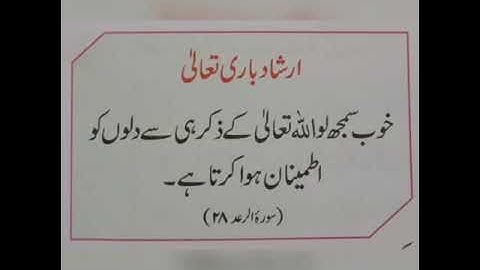 ارشاد باری تعالیٰ
خوب سمجھ لو اللہ تعالیٰ کے ذکر ہی سے دلوں کو
اطمینان ہوا کرتا ہے۔
(سورۂ الرعد ۲۸)